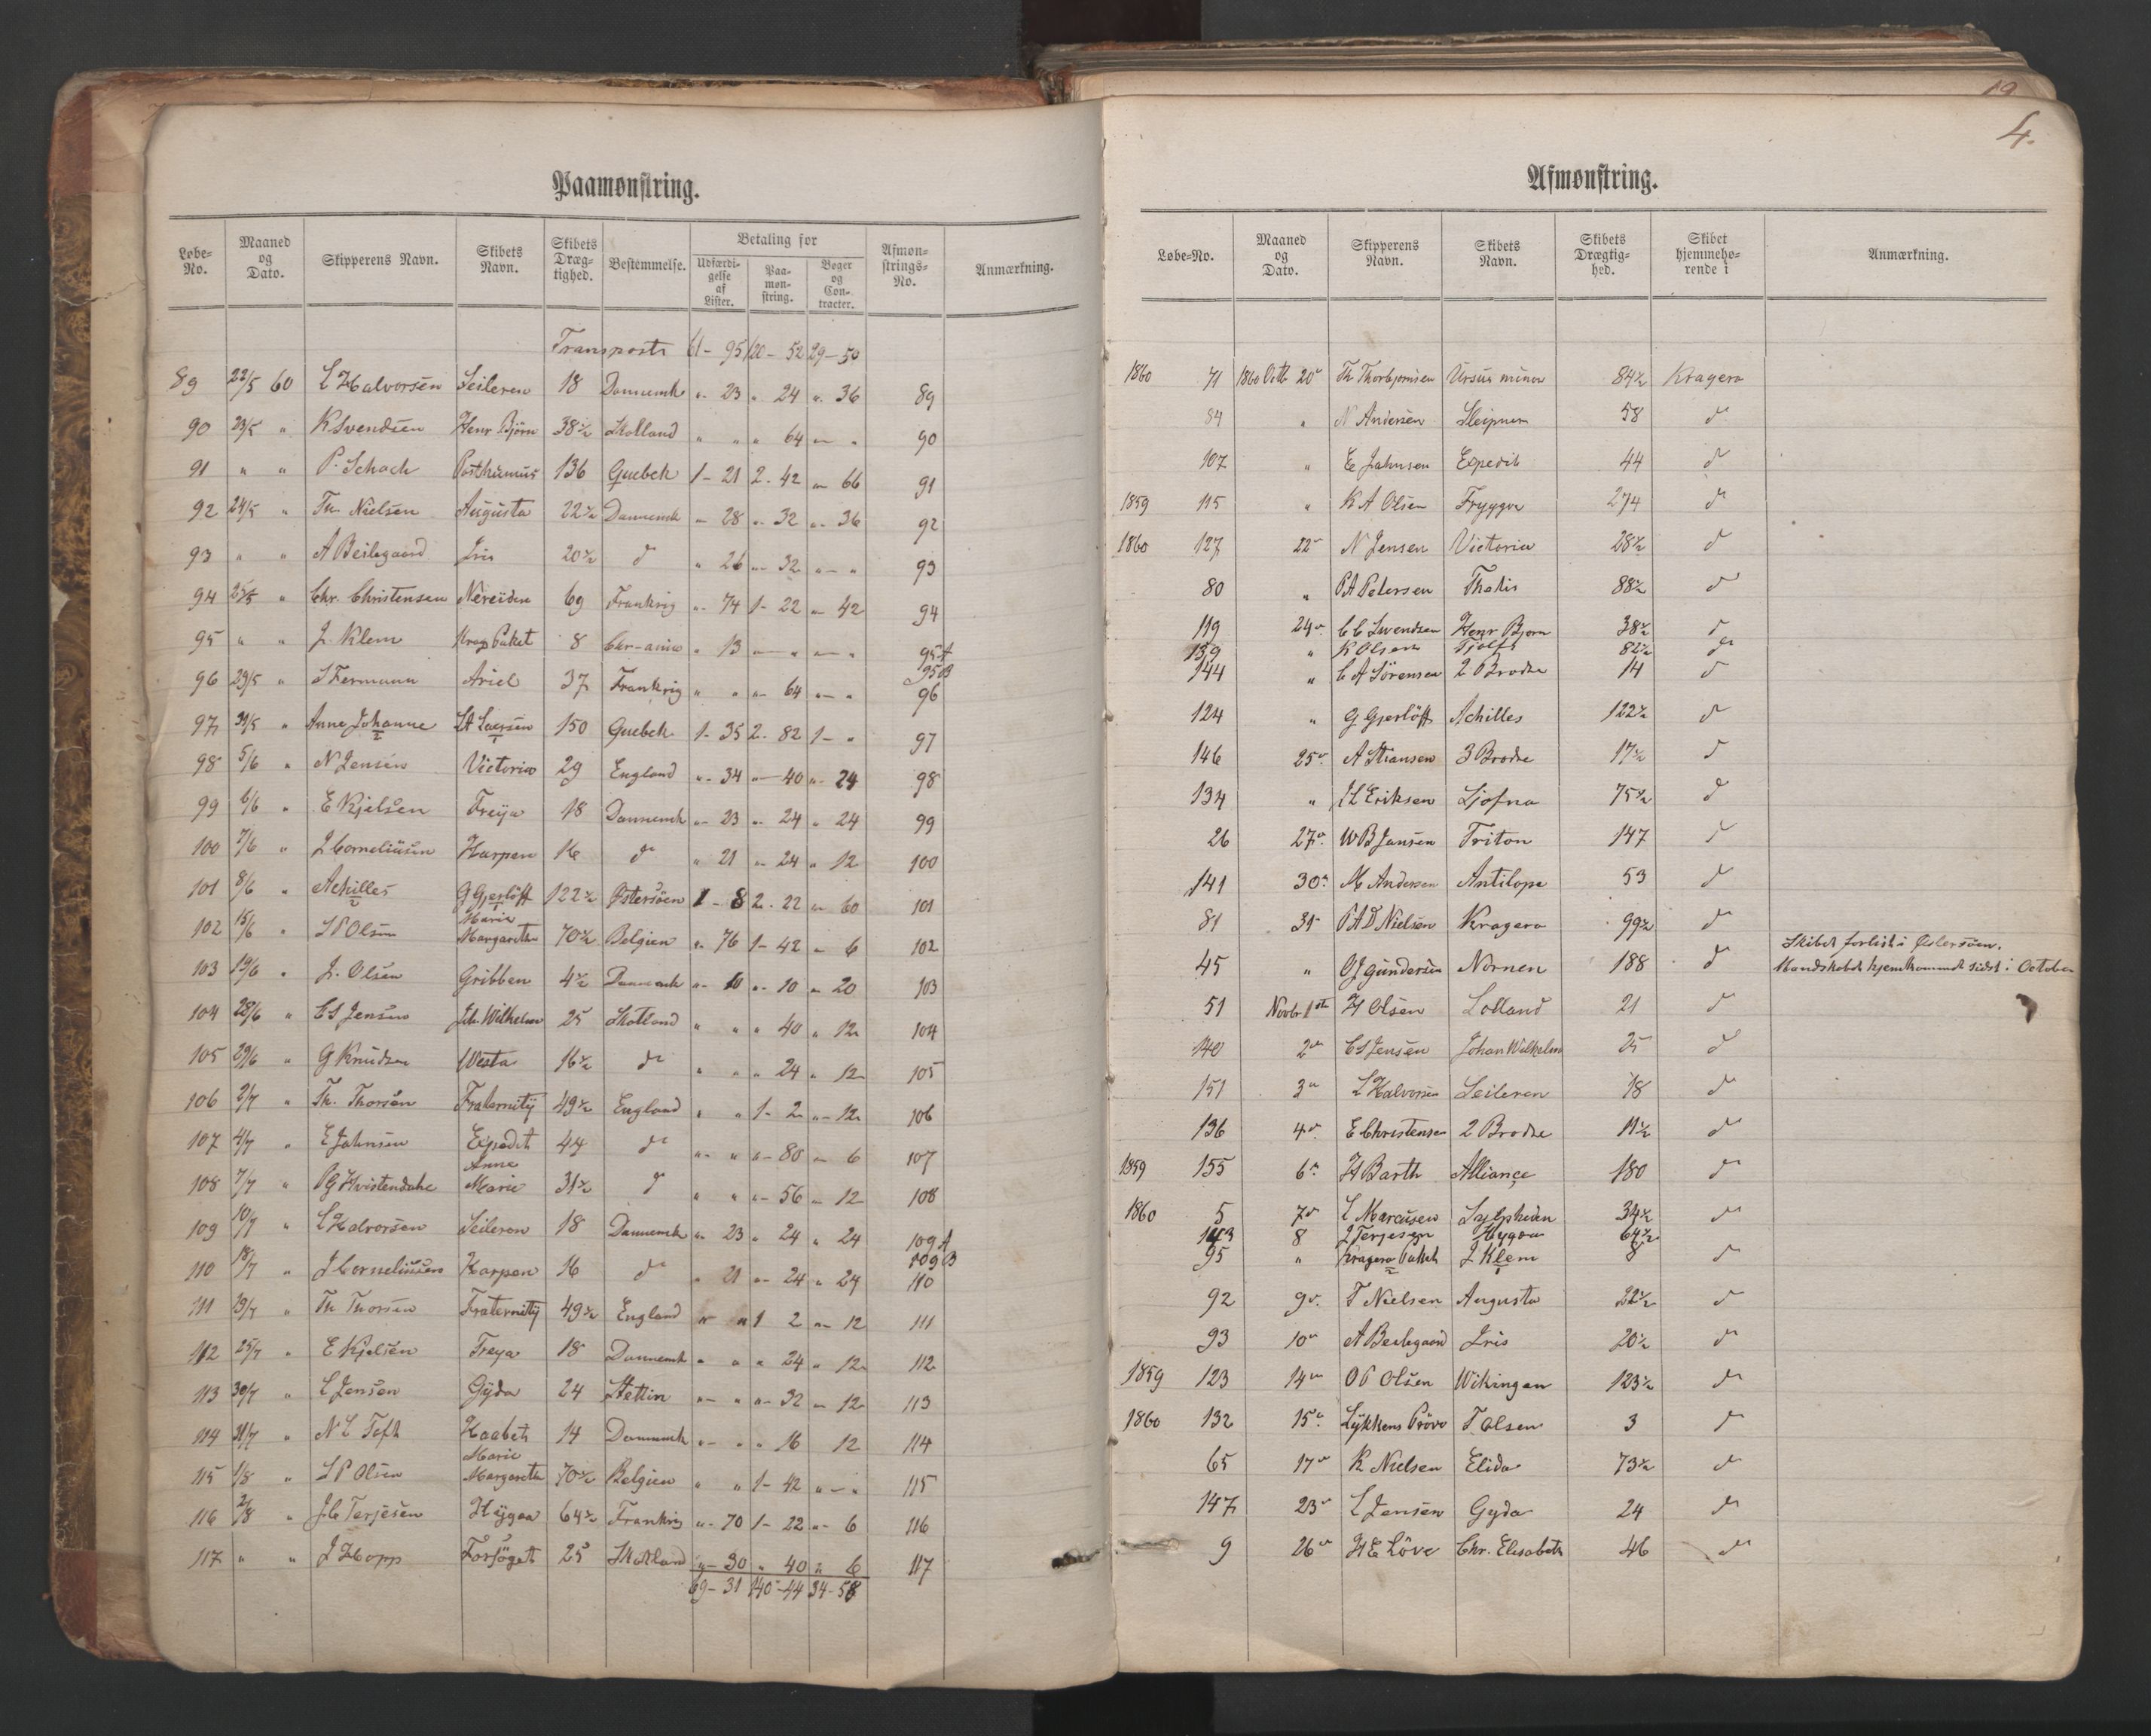 Paamønstring.
Løbe-No. Maaned og Dato. Skipperens Navn. Skibets Navn. Skibets Dræg-tighed. Bestemmelse. Betaling for Udfærdi-gelse af Lister. Paa-møn-string. Bøger og Con-tracter. Afmøn-strings-No. Anmærkning.
Transport 61-95 120-52 29-50
89 22/5 60 L Halvorsen Seileren 18 Dannemk " 23 " 24 " 36 89
90 23/5 " K Svendsen Henr Björn 38½ Skotland " " " 64 " " 90
91 " " P. Schach Posthumus 136 Quebek 1-21 2-42 " 66 91
92 24/5 " Th. Nielsen Augusta 22½ Dannemk " 28 " 32 " 36 92
93 " " A Beilegaard Iris 20½ do " 26 " 32 " " 93
94 25/5 " Chr. Christensen Nereiden 69 Frankrig " 74 1-22 " 42 94
95 " " J. Klem Krag Paket 8 Chr-ania " 13 " " " " 95A
95B
96 29/5 " S Fermann Ariel 37 Frankrig " " " 64 " " 96
97 31/5 " Anne Johanne 2 St Larsen 1 150 Quebek 1-35 2-82 1-" 97
98 5/6 " N Jensen Victoria 29 England " 34 " 40 " 24 98
99 6/6 " E Kjelsen Freya 18 Dannemk " 23 " 24 " 24 99
100 7/6 " J Corneliüsen Harpen 16 do " 21 " 24 " 12 100
101 8/6 " Achilles 2 G Gjerlöff 1 122½ Østersöen 1-8 2-22 " 60 101
102 15/6 " S P Olsen Maria Margaretha 70½ Belgien " 76 1-42 " 6 102
103 19/6 " J. Olsen Gribben 4½ Dannemk " 10 " 10 " 20 103
104 28/6 " C S Jensen Joh. Wilhelm 25 Skotland " " " 40 " 12 104
105 29/6 " G Knudsen Westa 16½ do " " " 24 " 12 105
106 2/7 " Th. Thorsen Fraternity 49½ England " " 1-2 " 12 106
107 4/7 " E Jahnsen Expedit 44 do " " " 80 " 6 107
108 7/7 " P G Hvistendahl Anne Marie 31½ do " " " 56 " 12 108
109 10/7 " L Halvorsen Seileren 18 Dannemk " 23 " 24 " 24 109A
109B
110 18/7 " J Corneliussen Harpen 16 do " 21 " 24 " 24 110
111 19/7 " Th Thorsen Fraternity 49½ England " " 1 2 " 12 111
112 25/7 " E Kjelsen Freya 18 Dannemk " " " 24 " 12 112
113 30/7 " L Jensen Gyda 24 Stettin " " " 32 " 12 113
114 31/7 " N L Toft Haabet 14 Dannemk " " " 16 12 114
115 1/8 " S P Olsen Marie Margaretha 70½ Belgien " " 1-42 " " 115
116 2/8 " J C Terjesen Hygea 64½ Frankrig " 70 1-22 " 6 116
117 " " J Hopp Forsöget 25 Skotland " 30 " 40 " 6 117
69-31 140-44 34-58
4.
Afmønstring.
Løbe-No. Maaned og Dato. Skipperens Navn. Skibets Navn. Skibets Drægtig-hed. Skibet hjemmehø-rende i Anmærkning.
1860 71 1860 Octb 20 Th Thorbjornsen Ursus minor 84½ Kragero
84 " N Andersen Sleipner 58 do
107 " E Jahnsen Expedit 44 do
1859 115 " K A Olsen Tryggve 274 do
1860 127 22 N Jensen Victoria 28½ do
80 " P A Petersen Thetis 88½ do
119 24 C C Svendsen Henr Bjorn 38½ do
139 " K Olsen Fjolfr 82½ do
144 " C A Sörensen 2 Brodre 14 do
124 " G Gjerlöff Achilles 122½ do
146 25 A Stiansen 3 Brodre 17½ do
134 " J L Eriksen Ljofna 75½ do
26 27 W B Jansen Triton 147 do
141 30 M Andersen Antilope 53 do
81 31 P A D Nielsen Kragero 99½ do
45 " O J Gundersen Nornen 188 do Skibet forlist i Östersöen. Mandskabet hjemkommet sidst i October
51 Novbr 1ste H Olsen Lolland 21 do
140 2 C S Jensen Johan Wilhelm 25 do
151 3 L Halvorsen Seileren 18 do
136 4 E Christensen 2 Brodre 11½ do
1859 155 6 H Barth Alliance 180 do
1860 5 7 L Marcusen 34½ do
143 8 J Terjesen Hygea 64½
95 " Kragero Pakket 2 J Klem 1 8 do
92 9 T Nielsen Augusta 22½ do
93 10 A Beilegaard Iris 20½ do
1859 123 14 O P Olsen Wikingen 123½ do
1860 132 15 Lykkens Pröve T Olsen 3 do
65 17 R Nielsen Elida 73½ do
147 23 L Jensen Gyda 24 do
9 26 H E Löve Chr. Elisabeth 46 do